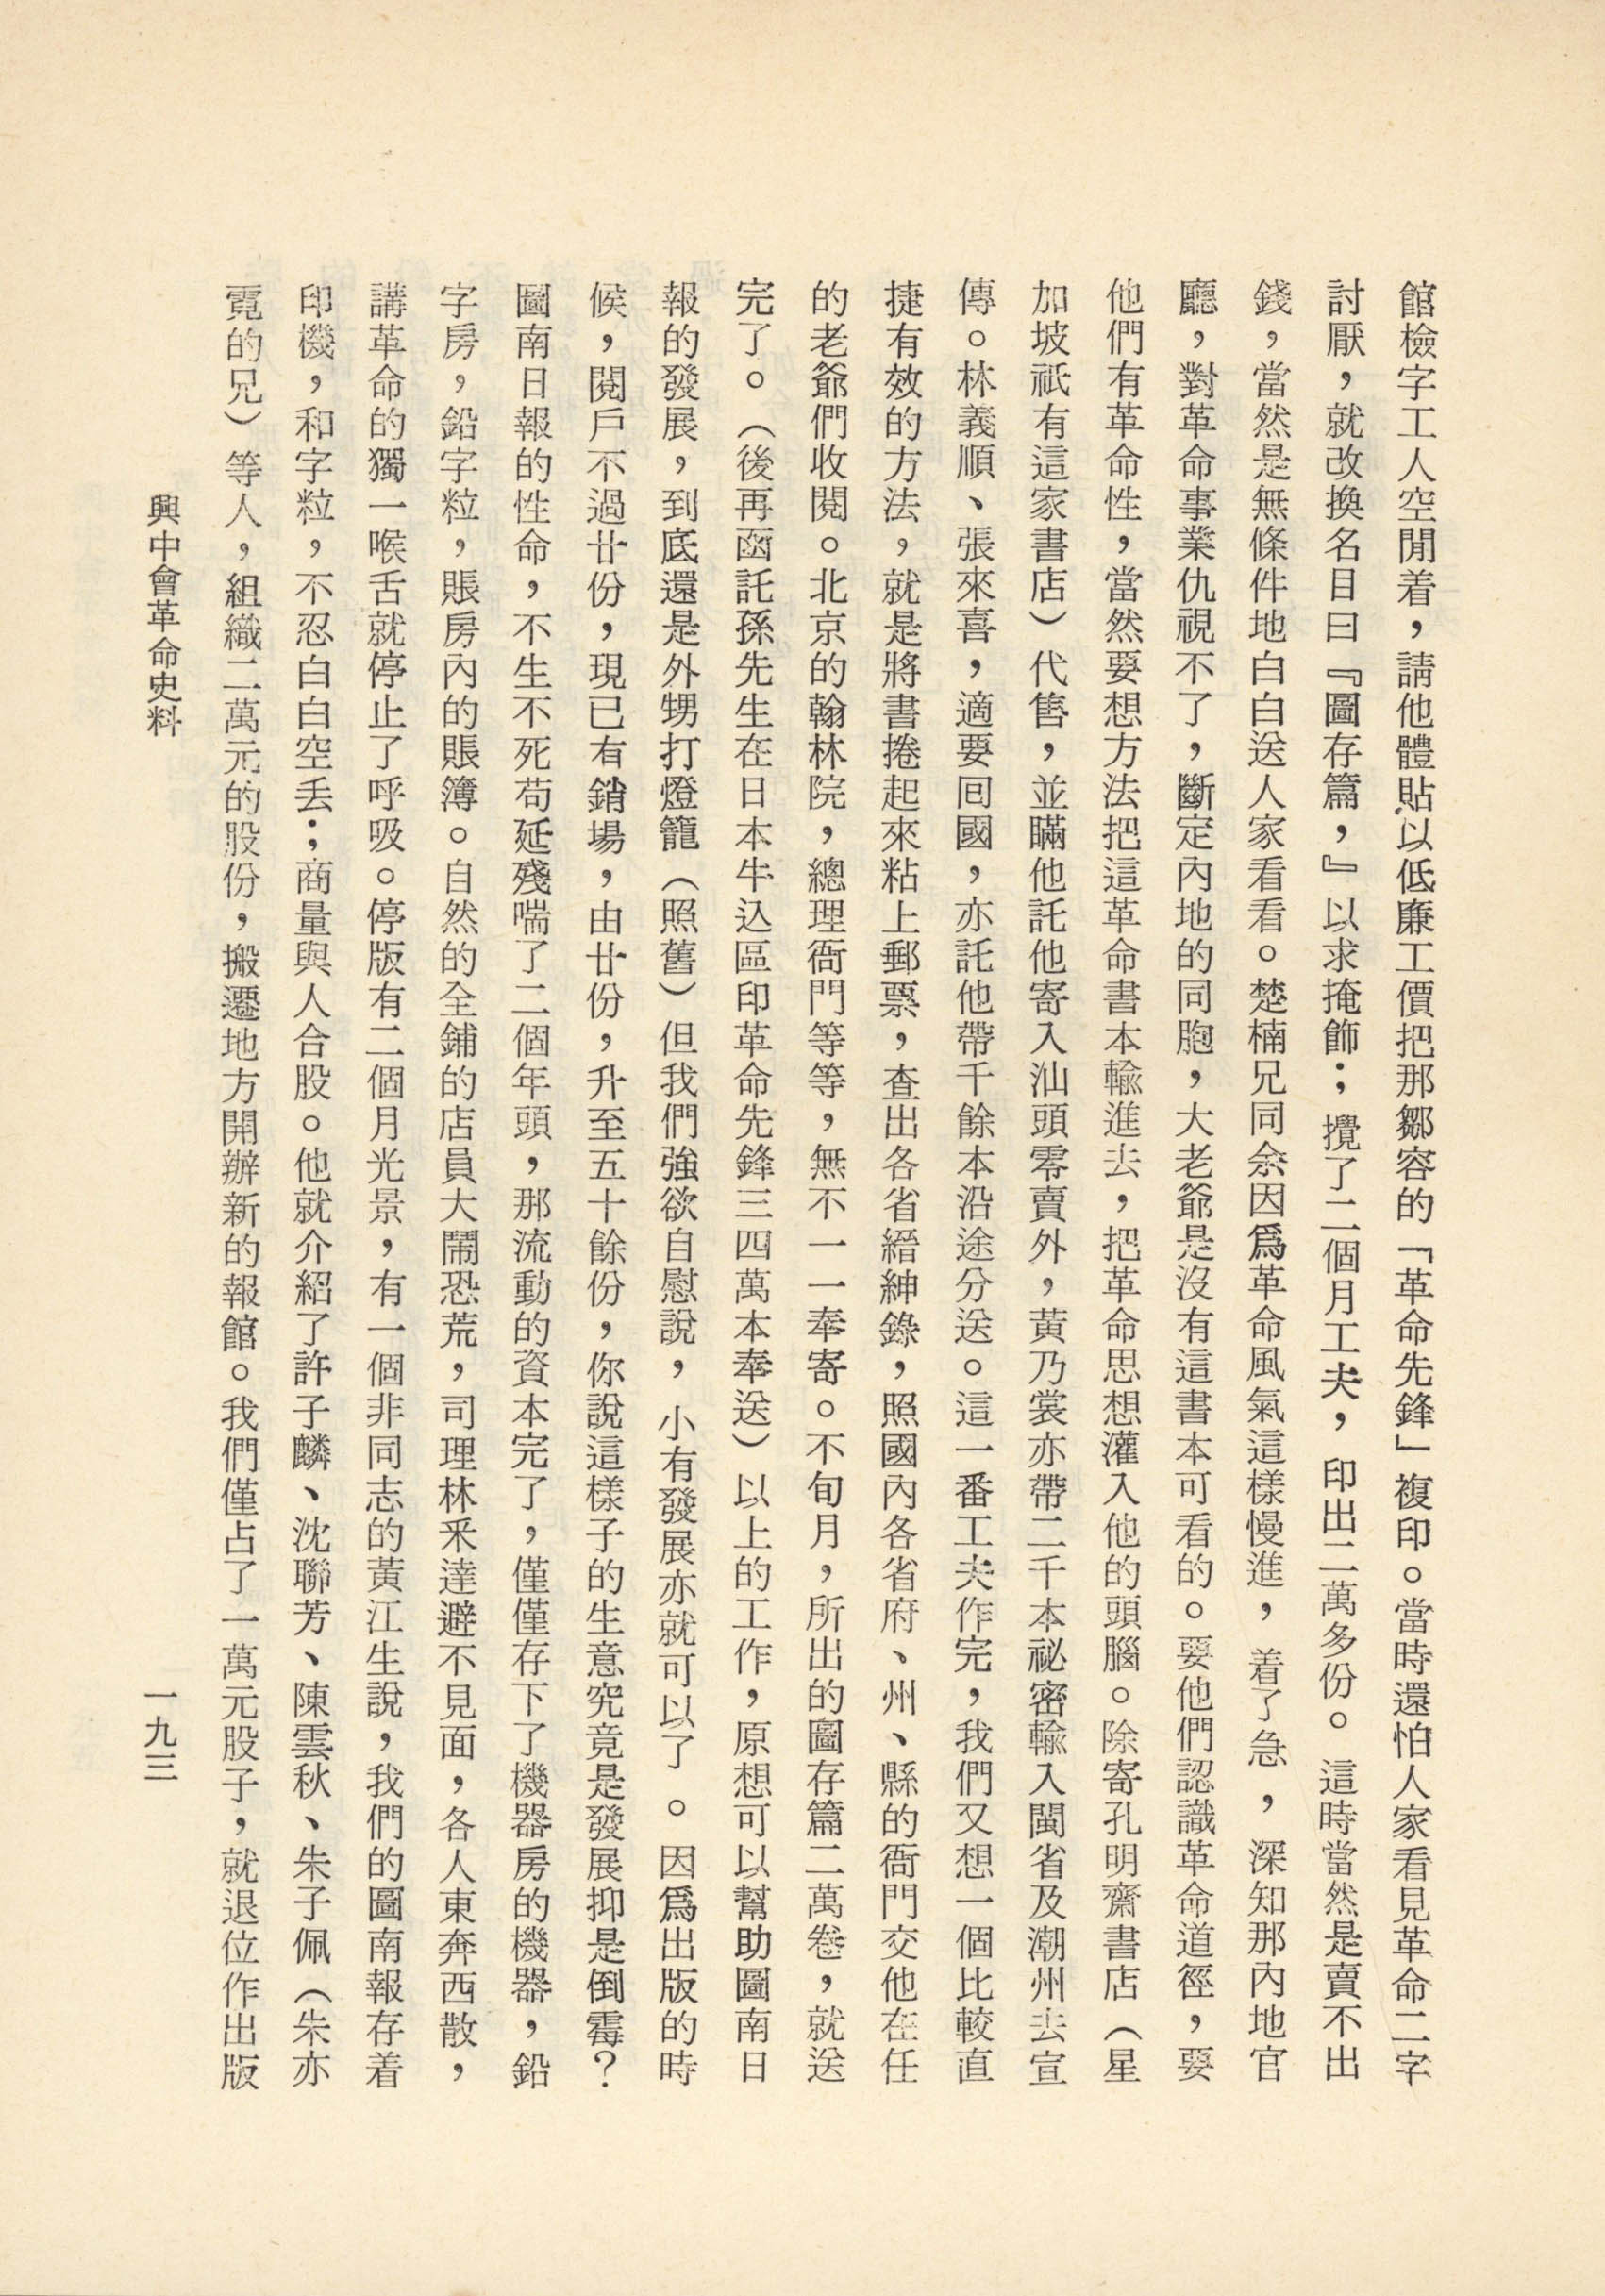 館檢字工人空閒着，請他體貼以低廉工價把那鄒容的「革命先鋒」複印。當時還怕人家看見革命二字
討厭，就改換名目曰『圖存篇，』以求掩飾；攪了二個月工夫，印出二萬多份。這時當然是賣不出
錢，當然是無條件地白白送人家看看。楚楠兄同余因爲革命風氣這樣慢進，着了急，深知那內地官
廳，對革命事業仇視不了，斷定內地的同胞，大老爺是沒有這書本可看的。要他們認識革命道徑，要
他們有革命性，當然要想方法把這革命書本輸進去，把革命思想灌入他的頭腦。除寄孔明齋書店（星
加坡祇有這家書店）代售，並瞞他託他寄入汕頭零賣外，黃乃裳亦帶二千本祕密輸入閩省及潮州去宣
傳。林義順、張來喜，適要囘國，亦託他帶千餘本沿途分送。這一番工夫作完，我們又想一個比較直
捷有效的方法，就是將書捲起來粘上郵票，查出各省縉紳錄，照國內各省府、州、縣的衙門交他在任
的老爺們收閱。北京的翰林院，總理衙門等等，無不一一奉寄。不旬月，所出的圖存篇二萬卷，就送
完了。（後再函託孫先生在日本牛込區印革命先鋒三四萬本奉送）以上的工作，原想可以幫助圖南日
報的發展，到底還是外甥打燈籠（照舊）但我們強欲自慰說，小有發展亦就可以了。因爲出版的時
候，閱戶不過廿份，現已有銷場，由廿份，升至五十餘份，你說這樣子的生意究竟是發展抑是倒霉？
圖南日報的性命，不生不死苟延殘喘了二個年頭，那流動的資本完了，僅僅存下了機器房的機器，鉛
字房，鉛字粒，賬房內的賬簿。自然的全鋪的店員大鬧恐荒，司理林采達避不見面，各人東奔西散，
講革命的獨一喉舌就停止了呼吸。停版有二個月光景，有一個非同志的黃江生說，我們的圖南報存着
印機，和字粒，不忍白白空丢；商量與人合股。他就介紹了許子麟、沈聯芳、陳雲秋、朱子佩（朱亦
霓的兄）等人，組織二萬元的股份，搬遷地方開辦新的報館。我們僅占了一萬元股子，就退位作出版
興中會革命史料
一九三